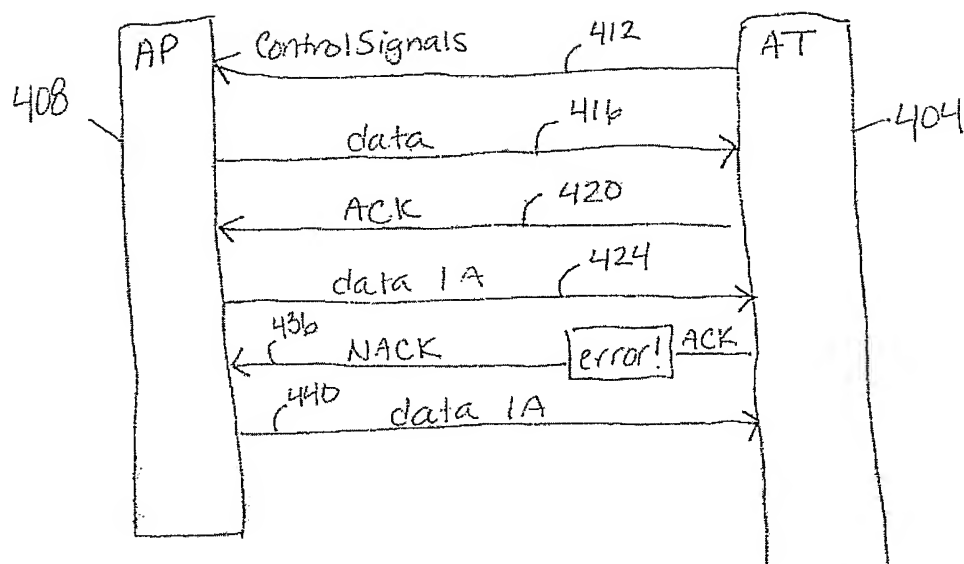 AP
Control Signals
412
AT
408
404
data
416
ACK
420
data 1A
424
436
NACK
error!
ACK
440
data 1A